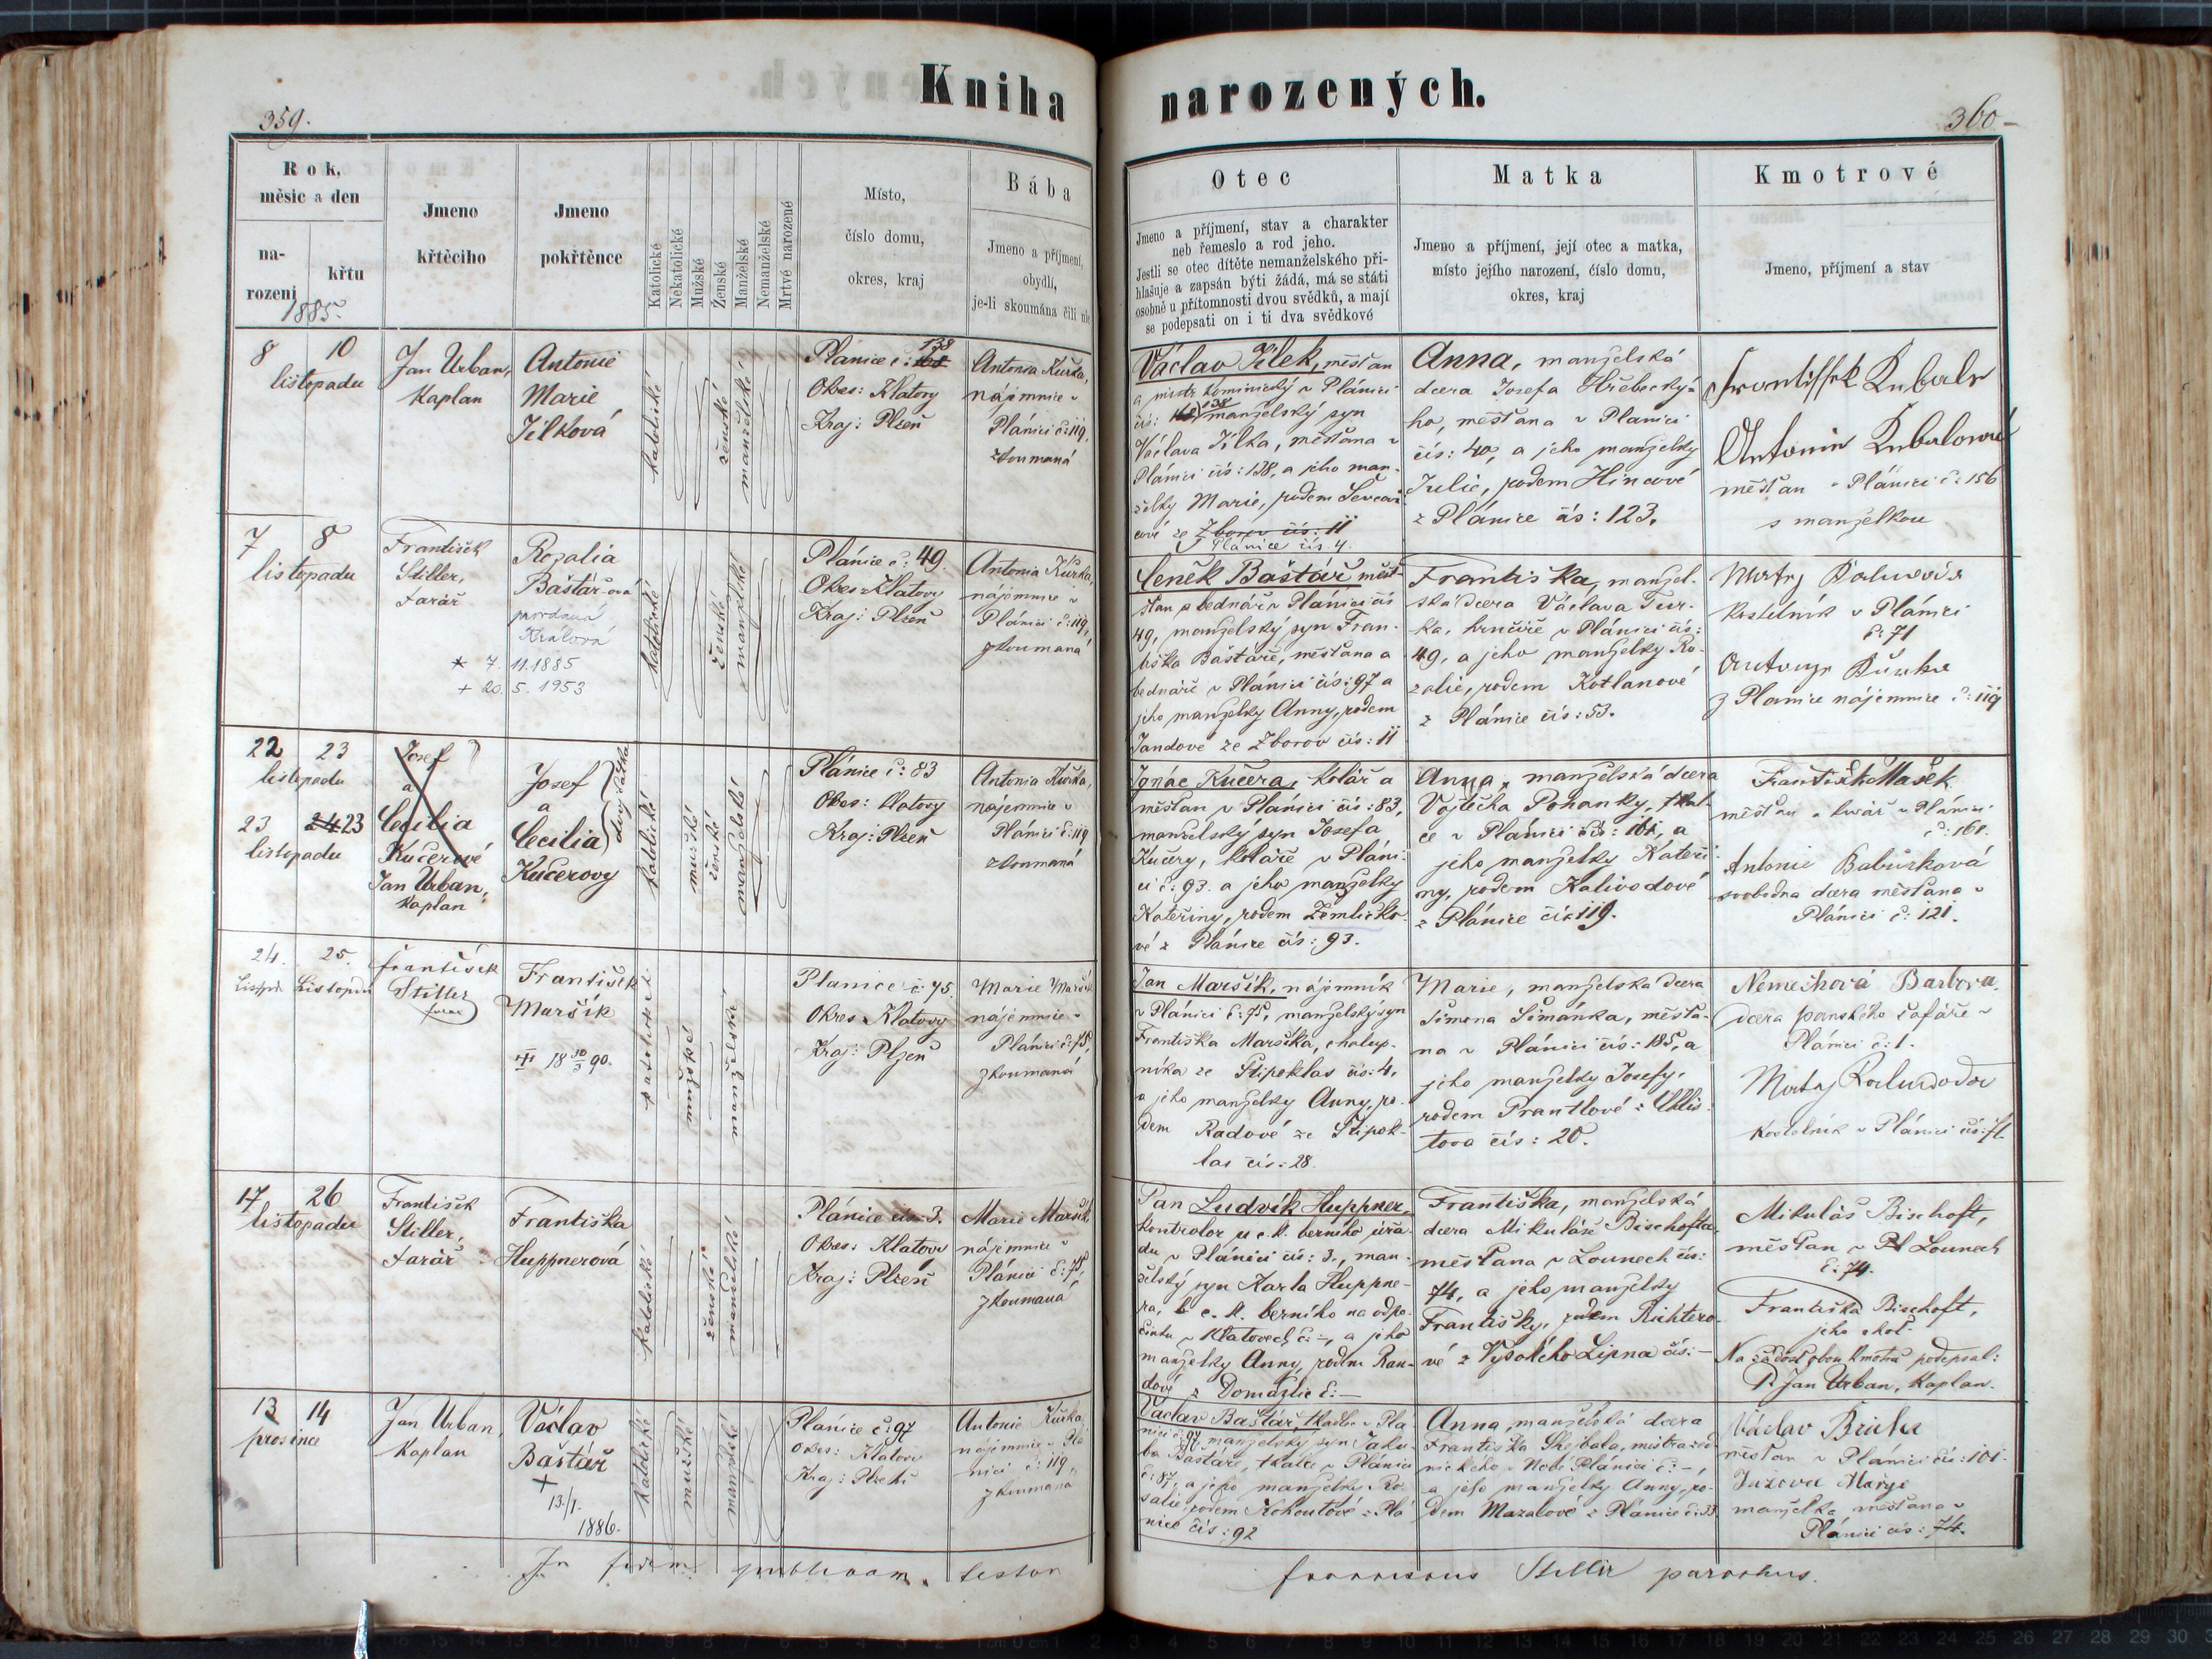 Kniha narozených.
359.
360
Rok,
měsíc a den
na-
rozeni
křtu
1885
Jmeno
křtěcího
Jmeno
pokřtěnce
Katolické
Nekatolické
Mužské
Ženské
Manželské
Nemanželské
Mrtvé narozené
Místo,
číslo domu,
okres, kraj
Bába
Jmeno a příjmení,
obydlí,
je-li skoumána čili nic
Otec
Jmeno a příjmení, stav a charakter
neb řemeslo a rod jeho.
Jestli se otec dítěte nemanželského při-
hlašuje a zapsán býti žádá, má se státi
osobně u přítomnosti dvou svědků, a mají
se podepsati on i ti dva svědkové
Matka
Jmeno a příjmení, její otec a matka,
místo jejího narození, číslo domu,
okres, kraj
Kmotrové
Jmeno, příjmení a stav
8 10
listopadu
Jan Urban,
Kaplan
Antonie
Marie
Jílková
katolické
ženské
manželské
Plánice č: 138
Okres: Klatovy
Kraj: Plzeň
Antonia Kůrka,
nájemnice v
Plánici č: 119,
zkoumaná
Václav Jílek, měšťan
a mistr kominický v Plánici
čís: 138 manželský syn
Václava Jílka, měšťana v
Plánici čís: 138, a jeho man-
želky Marie, rodem
ze Zborov čís: 11
Plánice čís. 4.
Anna, manželská
dcera Josefa Hřebecký-
ho, měšťana v Plánici
čís: 40, a jeho manželky
Julie, rodem Hincové
z Plánice čís: 123.
Frantisfek Kubale
Antonie Kubalowá
měšťan v Plánici č: 156
s manželkou
7 8
listopadu
František
Stiller,
Farář
Rozalia
Baštář-ová
provdaná
Králová
* 7. 11. 1885
+ 20. 5. 1953
katolické
ženské
manželské
Plánice č: 49.
Okres: Klatovy
Kraj: Plzeň
Antonia Kůrka,
nájemnice v
Plánici č: 119,
zkoumaná
Čeněk Baštář měšť-
ťan a bednář v Plánici čís
49, manželský syn Fran-
tiška Baštáře, měšťana a
bednáře v Plánici čís: 97 a
jeho manželky Anny, rodem
Jandové ze Zborov čís: 11
Františka, manžel-
ská dcera Václava Tur-
ka, hrnčíře v Plánici čís:
49, a jeho manželky Ro-
zalie, rodem Kotlanové
z Plánice čís: 53.
Matěj
kostelník v Plánici
č: 71
z Planice nájemnice č: 119
22 23
listopadu
23 24 23
listopadu
Josef
a
Cecilia
Kučerové
Jan Urban,
Kaplan
Josef
a
Cecilia
Kučerovy
katolické
mužské
ženské
manželské
Plánice č: 83
Okres: Klatovy
Kraj: Plzeň
Antonia Kůrka,
nájemnice v
Plánici č: 119
zkoumaná
Ignác Kučera, kolář a
měšťan v Plánici čís: 83,
manželský syn Josefa
Kučery, koláře v Pláni-
ci č: 93. a jeho manželky
Kateřiny, rodem Žemličko-
vé z Plánice čís: 93.
Anna, manželská dcera
Vojtěcha Pohanky, tkal-
ce v Plánici čís: 161, a
jeho manželky Kateři-
ny, rodem Kalivodové
z Plánice čís 119.
František Mašek
měšťan a v Plánici
č: 161.
Antonie Babůrková
svobodna dcera měšťana v
Plánici č: 121.
24. 25.
Listopadu
František
Stiller
farář
František
Maršík
katolické
mužské
manželské
Planice č: 75.
Okres: Klatovy
Kraj: Plzeň
Marie Maršík
nájemnice v
Plánici č: 75,
zkoumaná
Jan Maršík, nájemník
v Plánici č: 75, manželský syn
Františka Maršíka, chalup-
níka ze Štipoklas čís: 4,
a jeho manželky Anny, ro-
dem Radové ze Štipok-
las čís: 28.
Marie, manželská dcera
Šimona Šimánka, měšťa-
na v Plánici čís: 185, a
jeho manželky Josefy,
rodem Prantlové z
čís: 20.
Nemečková Barbora
dcera panského šafáře v
Plánici č: 1.
Matěj
kostelník v Plánici čís: 71
17 26
listopadu
František
Stiller,
Farář
Františka
Huppnerová
katolické
ženské
manželské
Plánice čís 3.
Okres: Klatovy
Kraj: Plzeň
Marie Maršík,
nájemnice v
Plánici č: 75,
zkoumaná
Pan Ludvík Huppner,
kontrolor u c. k. berního úřa-
du v Plánici čís: 3., man-
želský syn Karla Huppne-
ra, c. k. berního na odpo-
činku v Klatovech č: –, a jeho
manželky Anny, rodem Ran-
dové z Domažlic č: –
Františka, manželská
dcera Mikuláše Bischofta,
měšťana v Lounech čís:
74, a jeho manželky
Františky, rodem Richtero-
vé z Vysokého Lipna čís: –
Mikuláš Bischoft,
měšťan v Lounech
č: 74.
Františka Bischoft,
jeho choť.
Na žádost obou kmotrů podepsal:
P. Jan Urban, Kaplan.
13 14
prosince
Jan Urban,
Kaplan
Václav
Baštář
+
13./1.
1886.
katolické
mužské
manželské
Planice č: 97
Okres: Klatovy
Kraj: Plzeň
Antonie Kůrka,
nájemnice v Plá
nici č: 119,
zkoumaná
Václav Baštář, tkadlec v Plá-
nici č: 97 manželský syn Jaku-
ba Baštáře, tkalce v Plánici
č: 87, a jeho manželky Ro-
salie, rodem Kohoutové z Plá
nice čís: 92
Anna, manželská dcera
Františka Shejbala, mistra
v Plánici č: –,
a jeho manželky Anny, ro-
dem Mazalové z Plánice č: 33
Václav
měšťan v Plánici čís: 101.
manželka měšťana v
Plánici čís: 74.
In fidem publicam testor
Franciscus Stiller parochus.